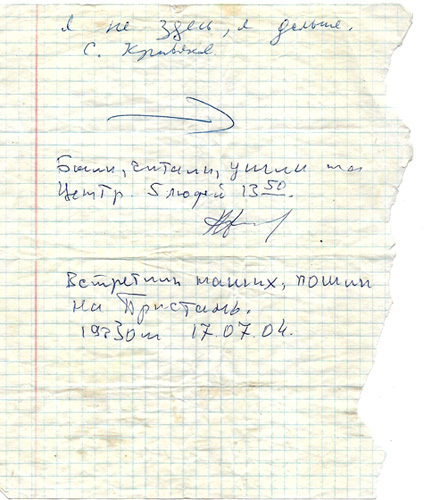 Я не здесь, я дальше.
С.
Были, читали, ушли на
Центр. 5 людей 13 50.
Встретили наших, пошли
на Пристань.
19 30 17.07.04.